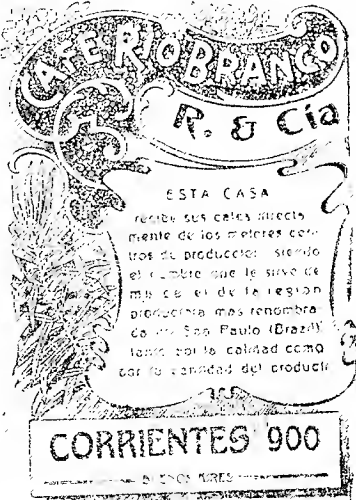 CAFE RIO BRANCO
R. & Cía
ESTA CASA
recibe sus cafes directa
mente de los mejores cen
tros de produccion siendo
el nombre que le sirve de
el de la region
productora mas renombra
da de Sao Paulo (Brazil)
tanto por la calidad como
por la cantidad del producto
CORRIENTES 900
BUENOS AIRES